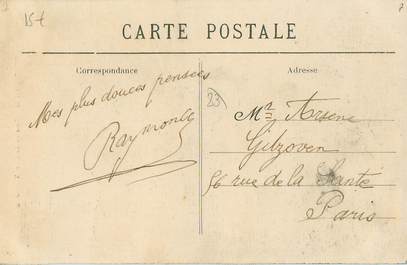 15t
CARTE POSTALE
Correspondance
Adresse
Mes plus douces pensées
Raymonde
23
Mr Arsène
Gilzoven
56 rue de la Santé
Paris